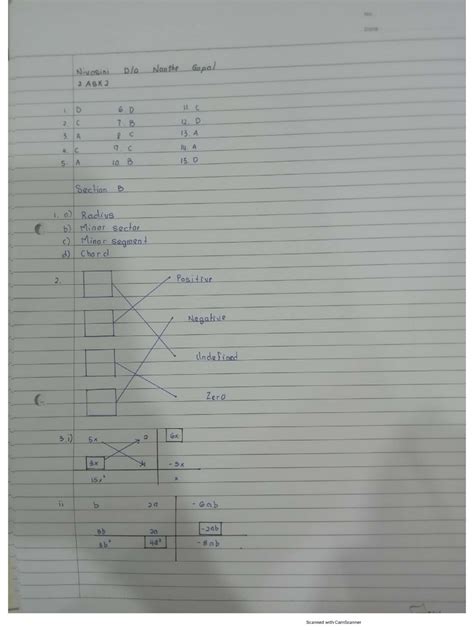 Nivasini D/O Nanthe Gopal
1. D 6. D 11. C
2. C 7. B 12. D
3. 8. C 13. A
4. C 9. C 14. A
5. A 10. B 15. D
Section B
1. a) Radius
b) Minor sector
c) Minor segment
d) Chord
2. Positive
Negative
Undefined
Zero
3. i) 5x 2 6x
3x -5x
15x² x
ii b 2a -6ab
8b 2a -2ab
8b² 4a² -8ab
Scanned with CamScanner